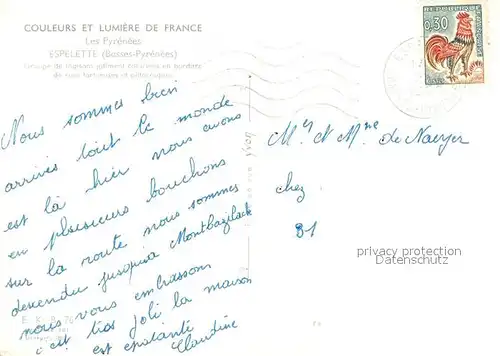 COULEURS ET LUMIÈRE DE FRANCE
Les Pyrénées
ESPELETTE (Basses-Pyrénées)
Groupe de maisons gaîment colorées en bordure
de rues tortueuses et pittoresques
Nous sommes bien
arrivés tout le monde
est là hier nous avons
eu plusieurs bouchons
sur la route nous sommes
descendu jusqu'à Montbazilack
nous vous embrassons
c'est très joli la maison
est épatante
Claudine
Mr et Mme de Naeyer
chez
31
0,30
yvon
privacy protection
Datenschutz